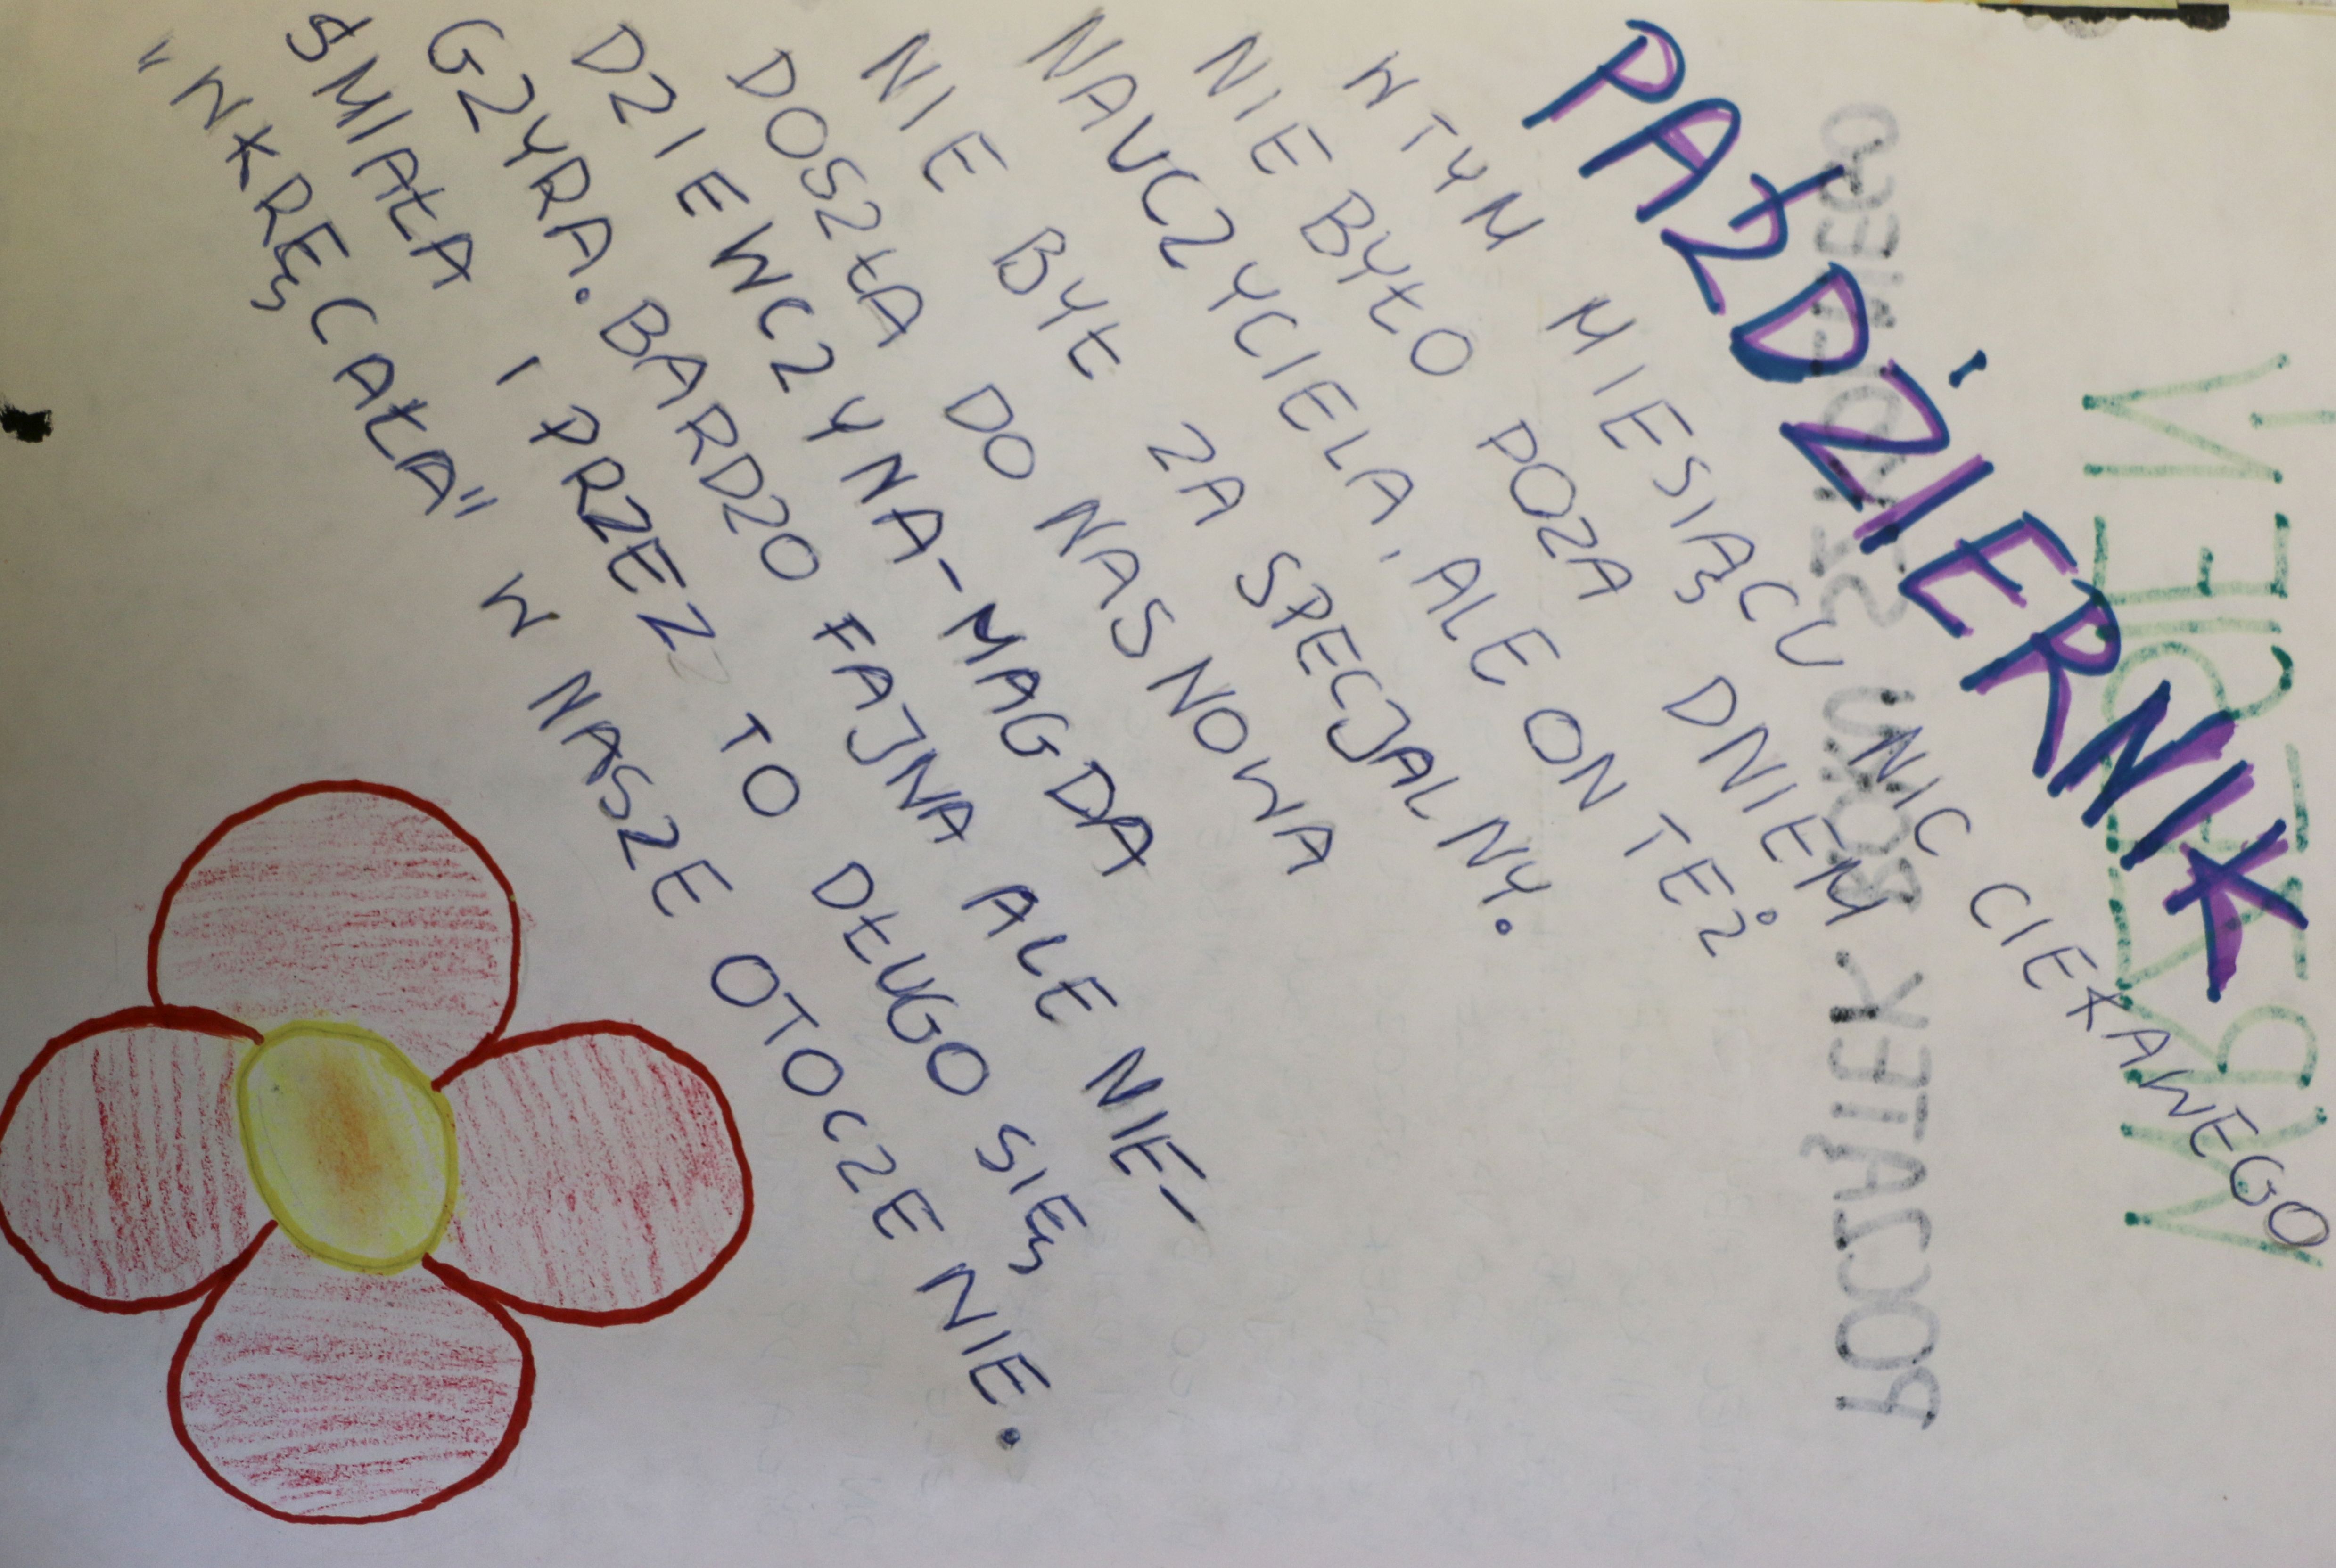 PAŹDŹIERNIK
W TYM MIESIĄCU NIC CIEKAWEGO
NIE BYŁO POZA DNIEM
NAUCZYCIELA, ALE ON TEŻ
NIE BYŁ ZA SPECJALNY.
DOSZŁA DO NAS NOWA
DZIEWCZYNA-MAGDA
GZYRA. BARDZO FAJNA ALE NIE-
ŚMIAŁA I PRZEZ TO DŁUGO SIĘ
"WKRĘCAŁA" W NASZE OTOCZENIE.